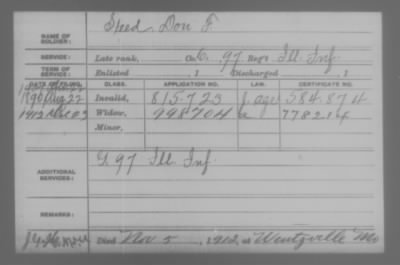 NAME OF SOLDIER: Speed, Don F.
SERVICE: Late rank, Co. G, 97 Reg't Ill. Inf.
TERM OF SERVICE: Enlisted , 1 Discharged , 1
DATE OF FILING. CLASS. APPLICATION NO. LAW. CERTIFICATE NO.
1890 Aug 22 Invalid, 815.723 584.874
1912 Widow, 998704 778214
Minor,
ADDITIONAL SERVICES: G. 97 Ill. Inf.
REMARKS:
Died Nov 5, 1912, at Wentzville Mo